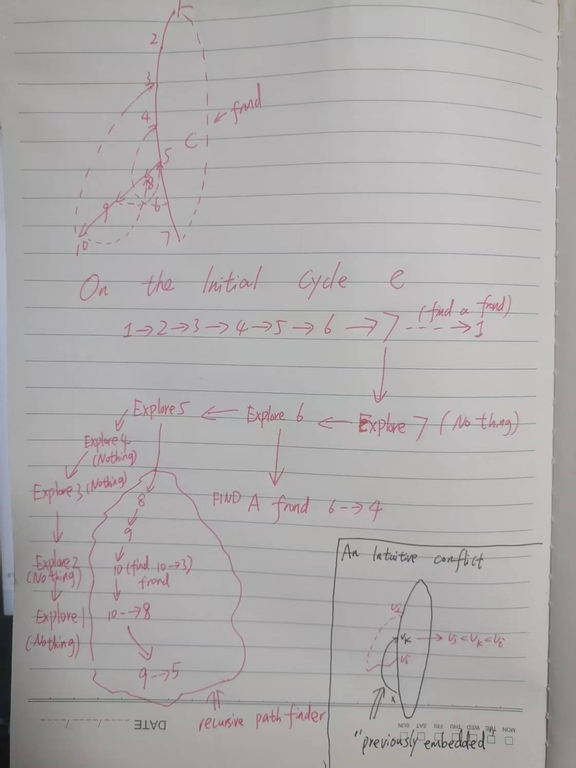 1
2
3
4
5
6
7
8
9
10
C
frond
On the Initial Cycle C
(find a frond)
1→2→3→4→5→6→7-->1
Explore 5 ← Explore 6 ← Explore 7 (Nothing)
Explore 4
(Nothing)
Explore 3 (Nothing)
8
FIND A frond 6-->4
9
Explore 2
(Nothing)
10 (find 10-->3)
frond
Explore 1
(Nothing)
10-->8
9→5
recursive path finder
An Intuitive conflict
Vk
→ Vj < Vk < Vi
Vj
x
"previously embedded"
DATE
MON
TUE
WED
THU
FRI
SAT
SUN